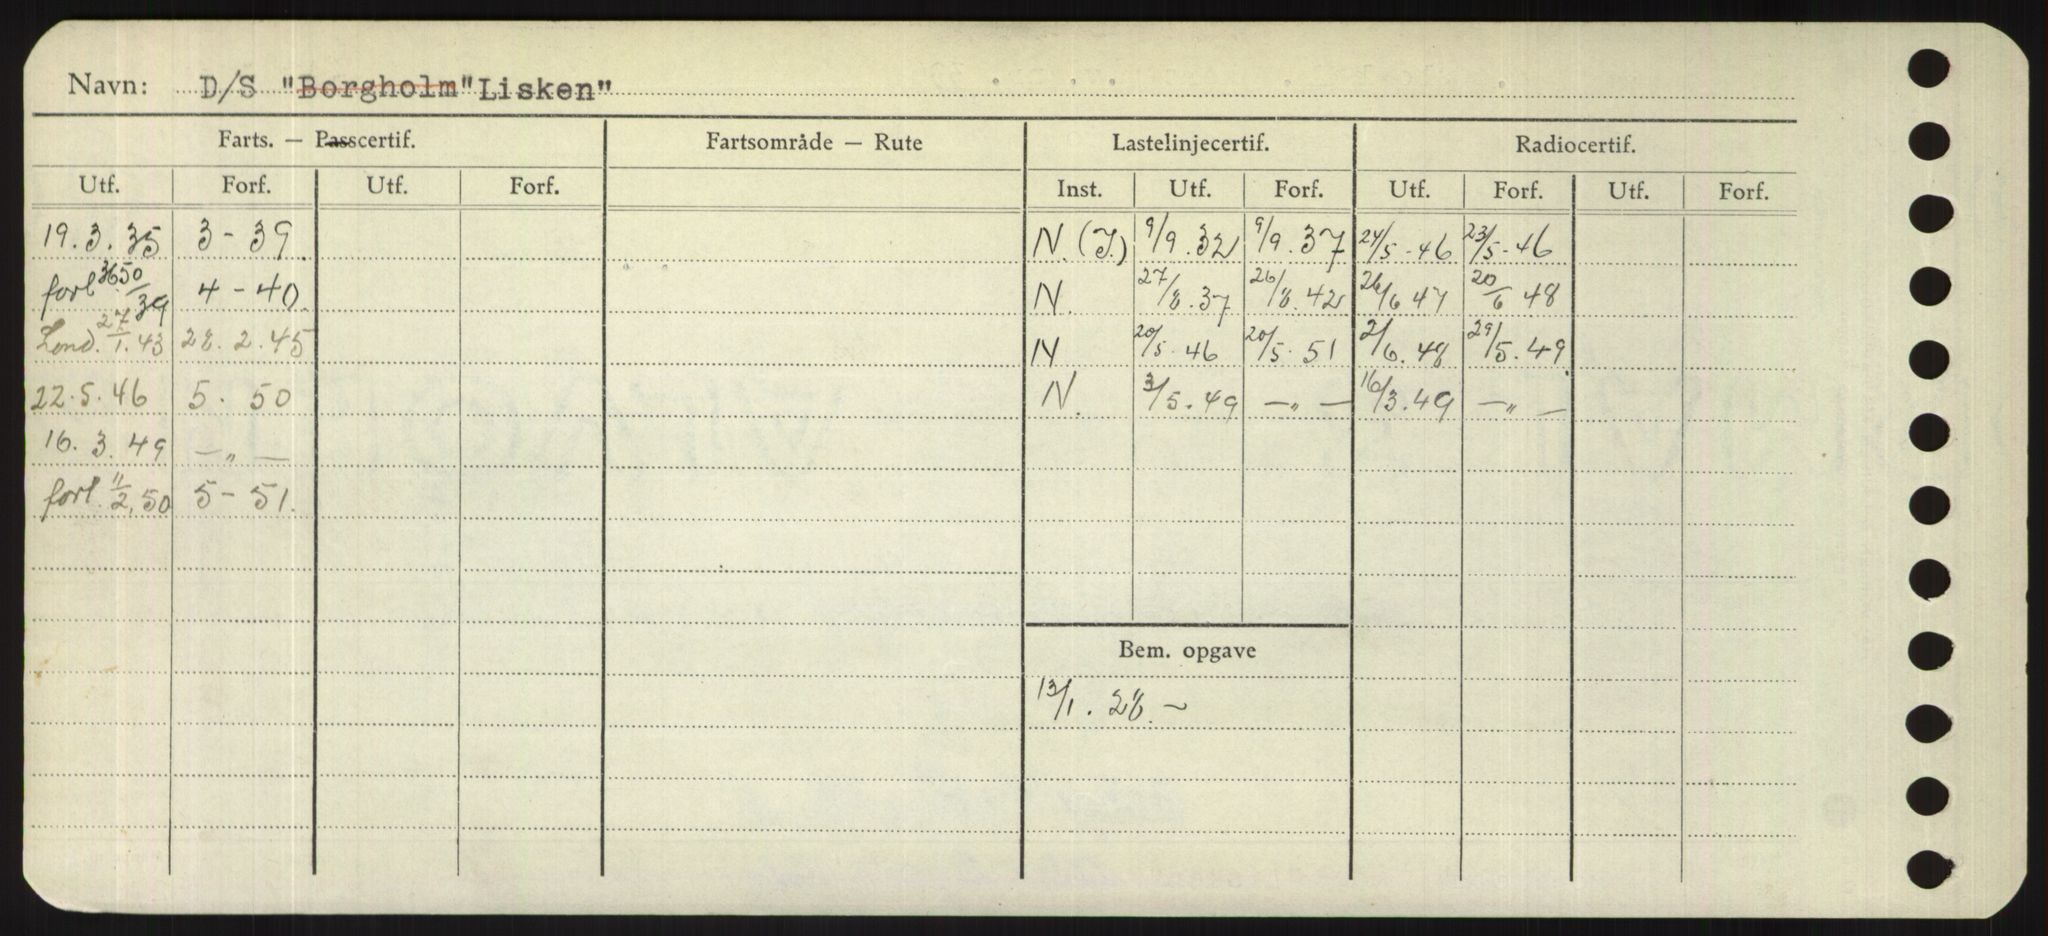 Navn: D/S "Borgholm" Lisken"
Farts. — Passcertif. Fartsområde — Rute Lastelinjecertif. Radiocertif.
Utf. Forf. Utf. Forf. Inst. Utf. Forf. Utf. Forf. Utf. Forf.
19.3.35 3-39. N.(I.) 9/9.32 9/9.37 24/5.46 23/5-46
forl 39 4-40. N. 27/8.37 26/8.42 26/6 47 20/6 48
Lond. 27/1.43 28.2.45 N 20/5.46 20/5.51 2/6.48 29/5.49
22.5.46 5.50 N. 3/5.49 —„— 16/3.49 —„—
16.3.49 —„—
forl. 11/2.50 5-51.
Bem. opgave
13/1.28.~